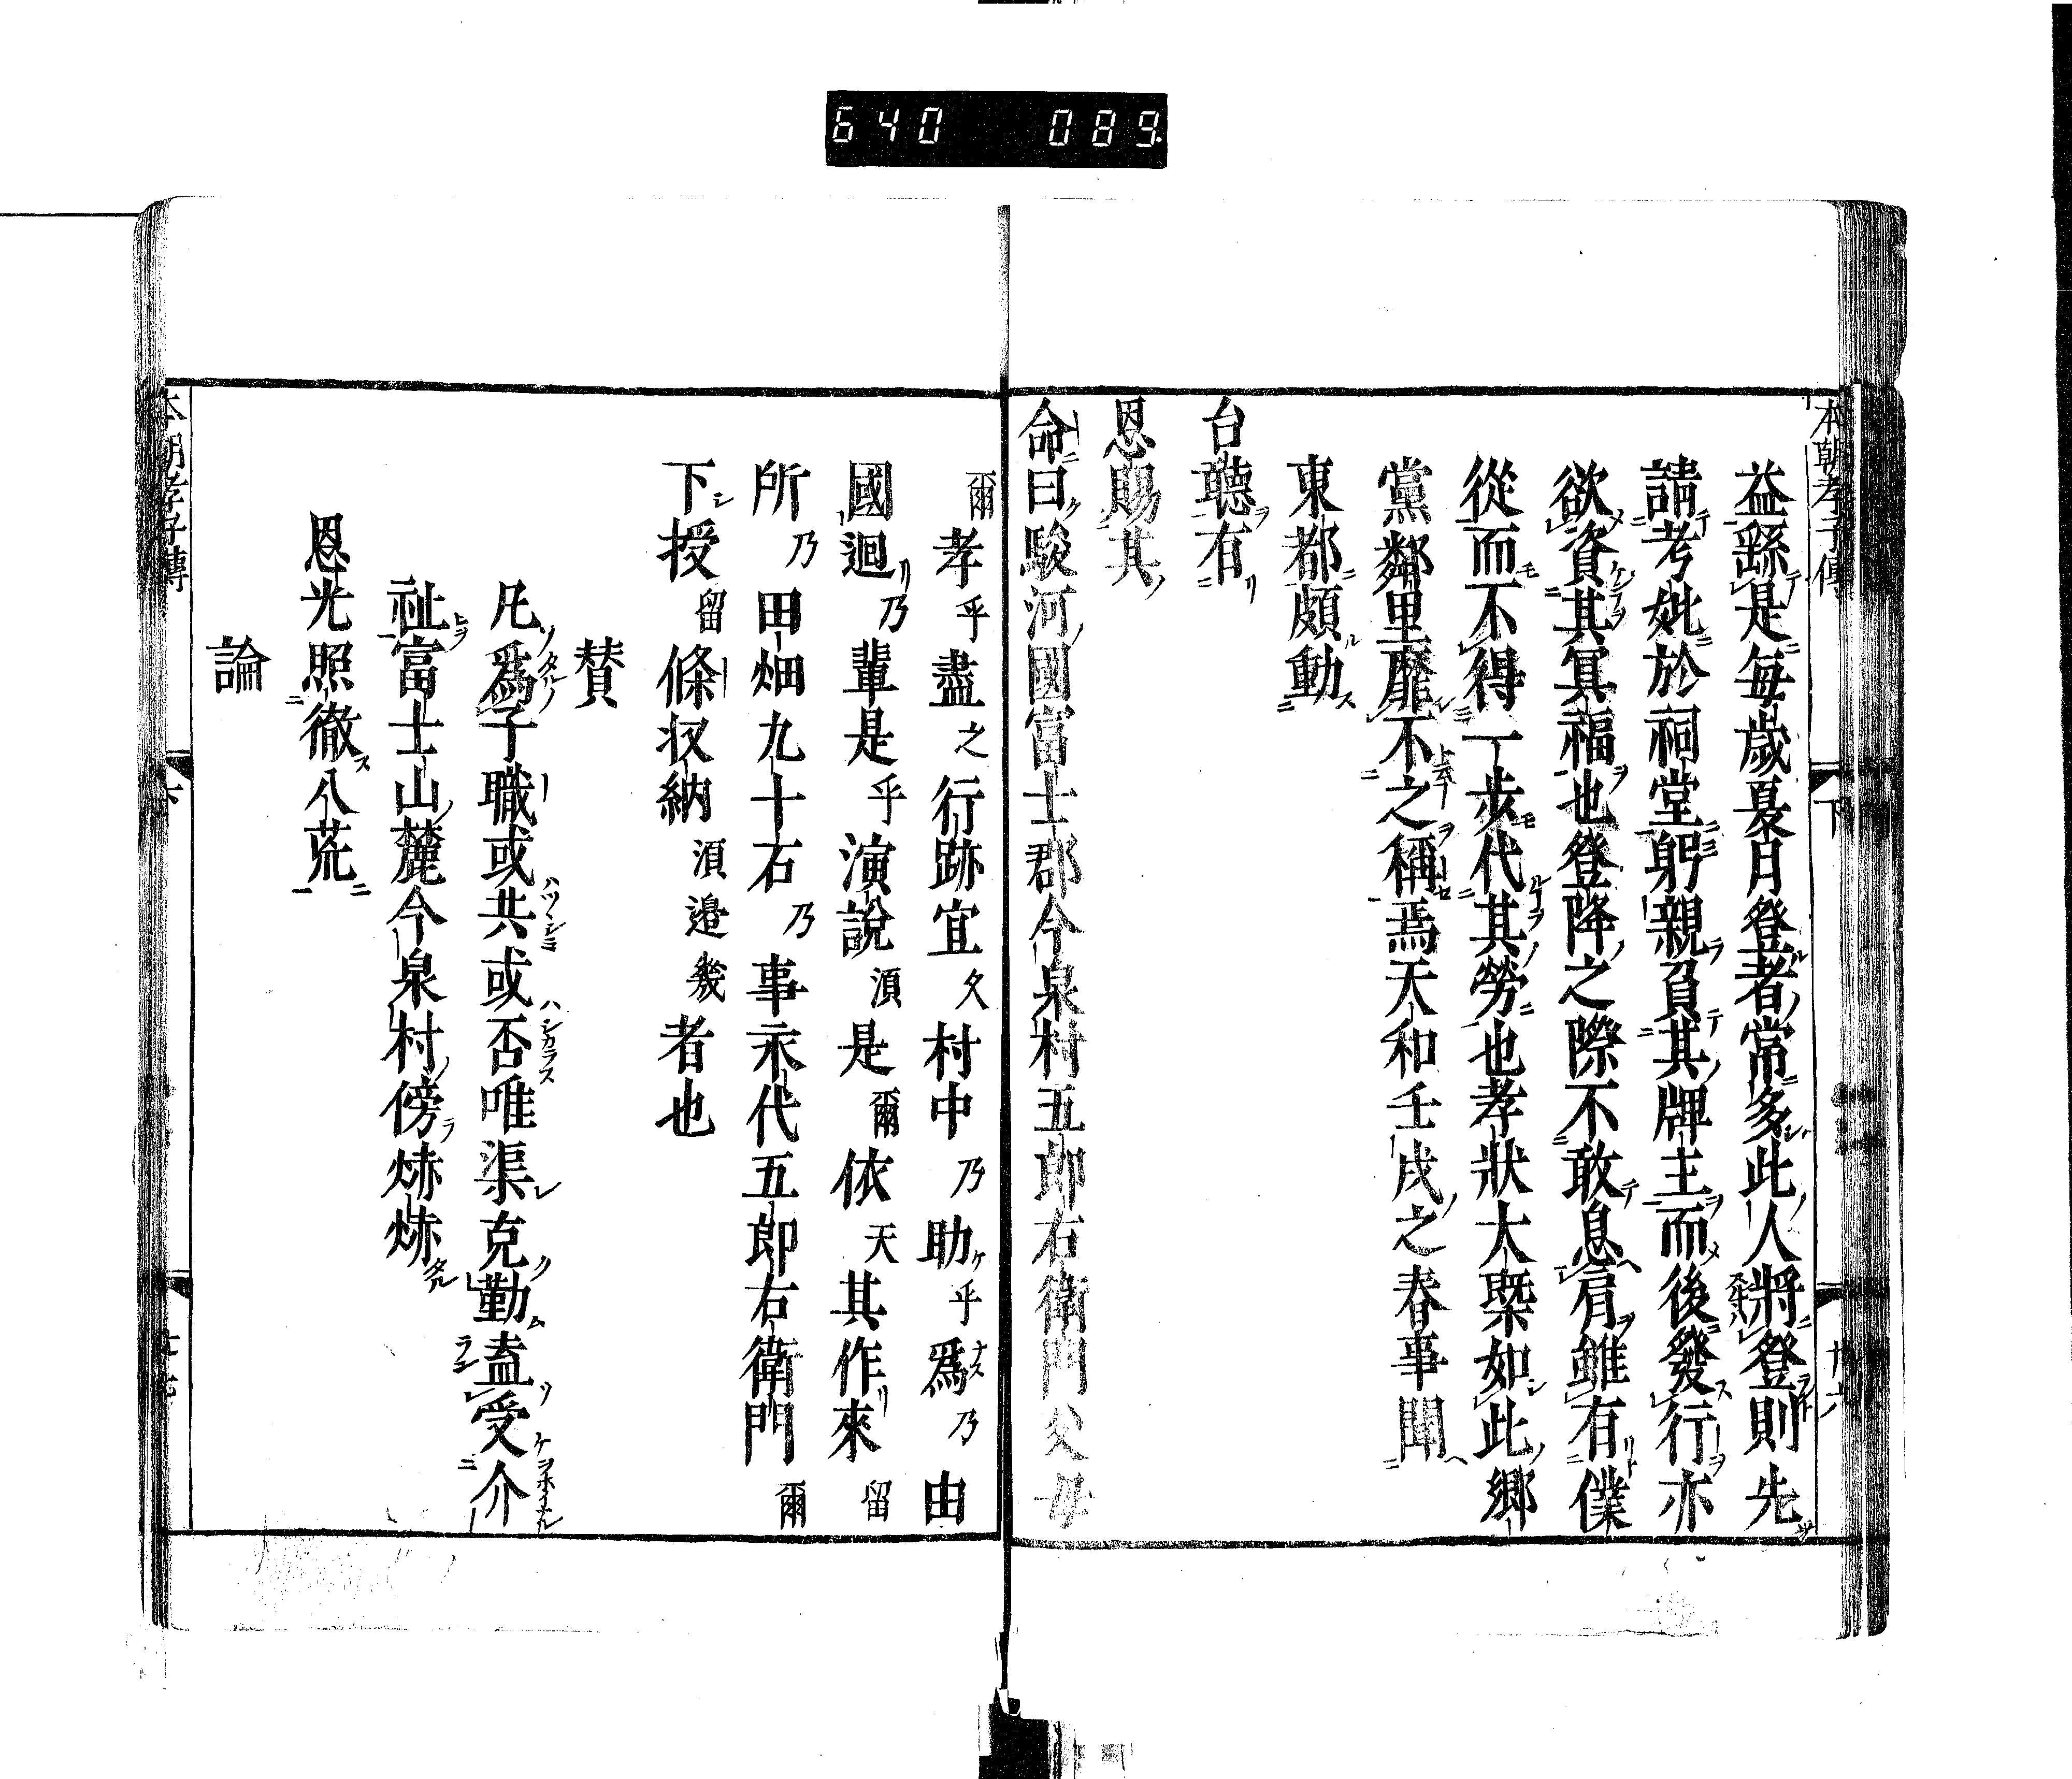 640 089
本朝孝子傳 下
益繇是毎歳夏月登者常多此人將登則先
請考妣於祠堂躬親負其牌主而後發行亦
欲資其冥福也登降之際不敢息肩雖有僕
從而不得一步代其勞也孝狀大槩如此鄉
黨鄰里靡不之稱焉天和壬戌之春事聞
東都頗動
台聽有
恩賜其
命曰駿河國富士郡今泉村五郎右衛門父母
爾孝乎盡之行跡宜久村中乃助ケ乎爲乃由
國迴リ乃輩是乎演說湏是爾依天其作來留
所乃田畑九十石乃事永代五郎右衛門爾
下授留條収納湏邉幾者也
贊
凡爲子職或共或否唯渠克勤盍受介
祉富士山麓今泉村傍烞烞
恩光照徹八荒
論
本朝孝子傳 下